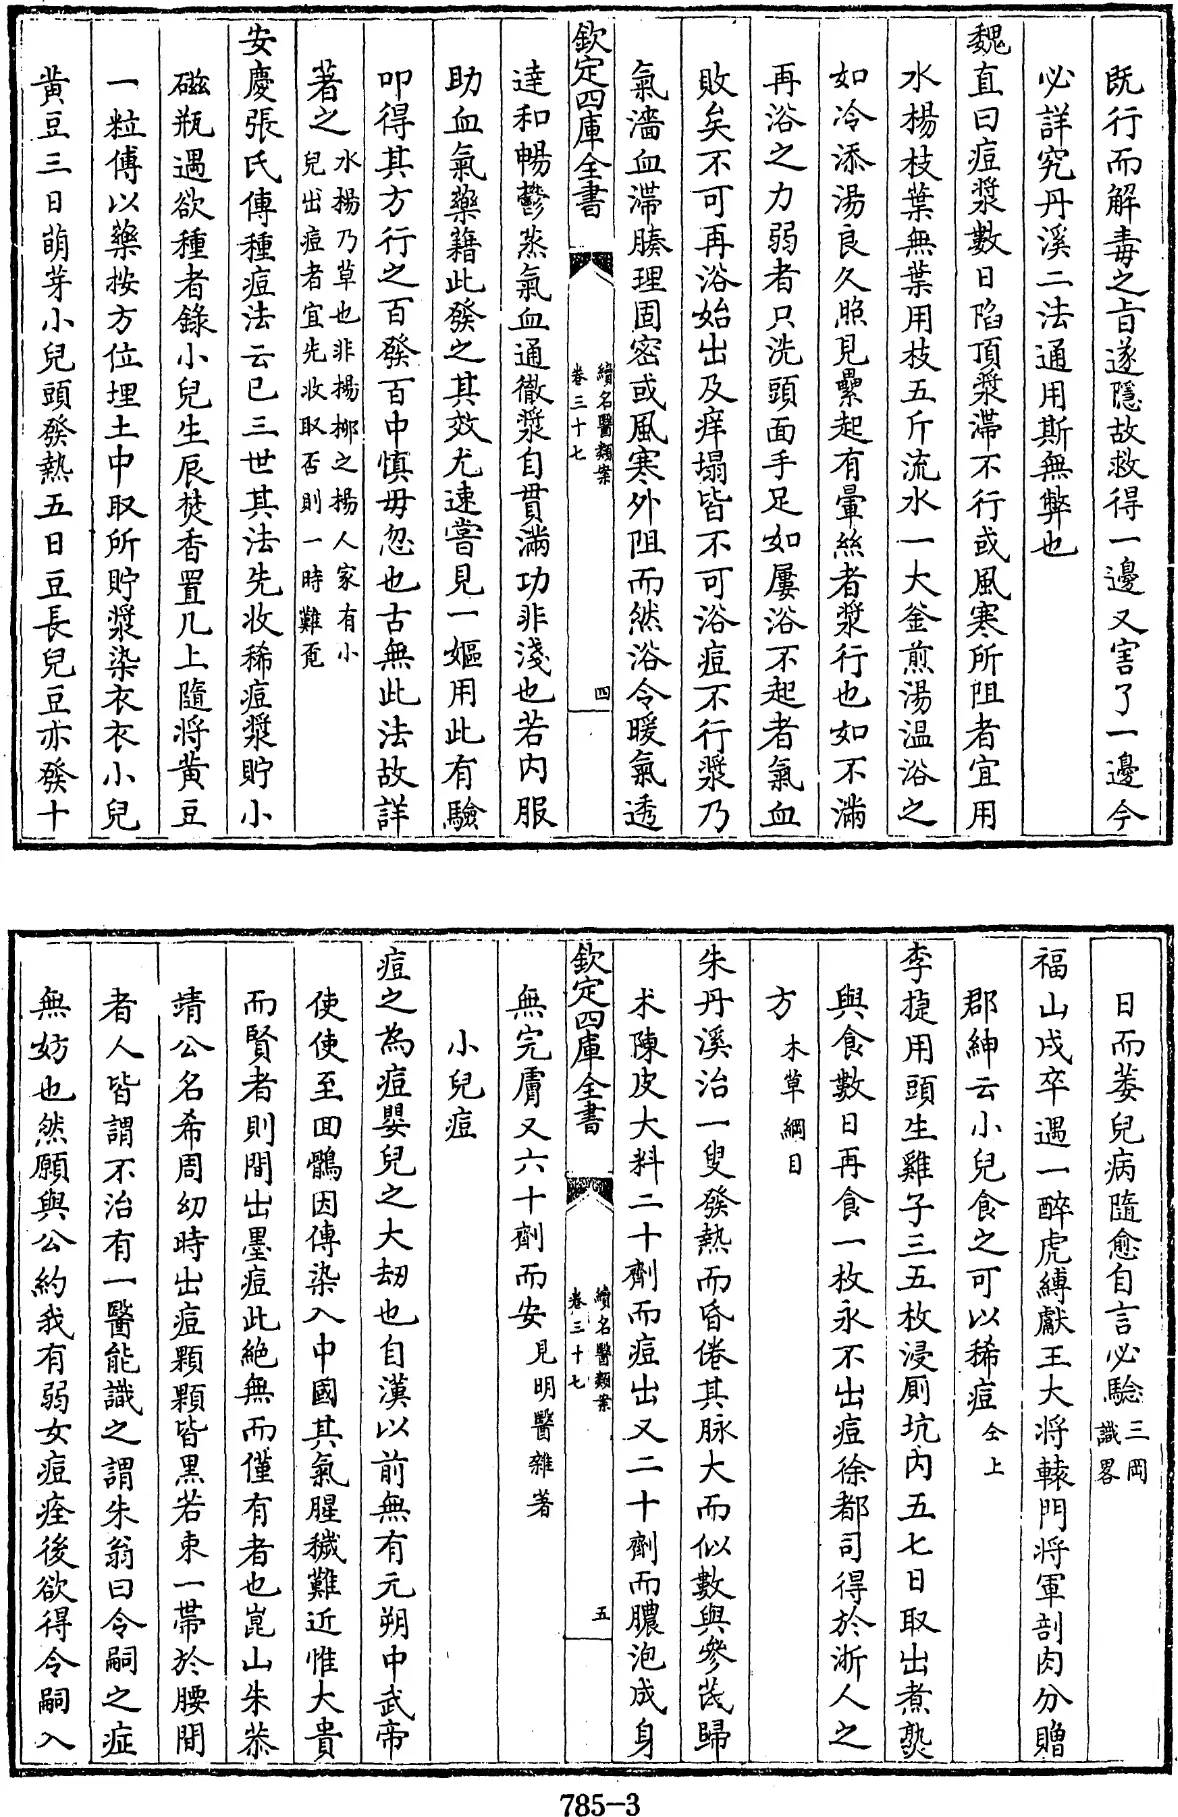 既行而解毒之旨遂隱故救得一邊又害了一邊今
必詳究丹溪二法通用斯無弊也
魏直曰痘漿數日陷頂漿滯不行或風寒所阻者宜用
水楊枝葉無葉用枝五斤流水一大釜煎湯温浴之
如冷添湯良久照見纍起有暈絲者漿行也如不滿
再浴之力弱者只洗頭面手足如屢浴不起者氣血
敗矣不可再浴始出及痒塌皆不可浴痘不行漿乃
氣濇血滯腠理固密或風寒外阻而然浴令暖氣透
欽定四庫全書
續名醫類案
卷三十七
四
達和暢鬱蒸氣血通徹漿自貫滿功非淺也若内服
助血氣藥藉此發之其效尤速嘗見一嫗用此有驗
叩得其方行之百發百中慎毋忽也古無此法故詳
著之
水楊乃草也非楊柳之楊人家有小
兒出痘者宜先收取否則一時難覓
安慶張氏傳種痘法云已三世其法先收稀痘漿貯小
磁瓶遇欲種者錄小兒生辰焚香置几上隨將黄豆
一粒傅以藥按方位埋土中取所貯漿染衣衣小兒
黄豆三日萌芽小兒頭發熱五日豆長兒豆亦發十
日而萎兒病隨愈自言必驗
三岡
識畧
福山戍卒遇一醉虎縛獻王大將轅門將軍剖肉分贈
郡紳云小兒食之可以稀痘
仝上
李捷用頭生雞子三五枚浸厠坑内五七日取出煮熟
與食數日再食一枚永不出痘徐都司得於浙人之
方
本草綱目
朱丹溪治一叟發熱而昏倦其脉大而似數與參茋歸
术陳皮大料二十劑而痘出又二十劑而膿泡成身
欽定四庫全書
續名醫類案
卷三十七
五
無完膚又六十劑而安
見明醫雜著
小兒痘
痘之為痘嬰兒之大刼也自漢以前無有元朔中武帝
使使至回鶻因傳染入中國其氣腥穢難近惟大貴
而賢者則間出墨痘此絶無而僅有者也崑山朱恭
靖公名希周幼時出痘顆顆皆黑若束一帶於腰間
者人皆謂不治有一醫能識之謂朱翁曰令嗣之症
無妨也然願與公約我有弱女痘痊後欲得令嗣入
785-3